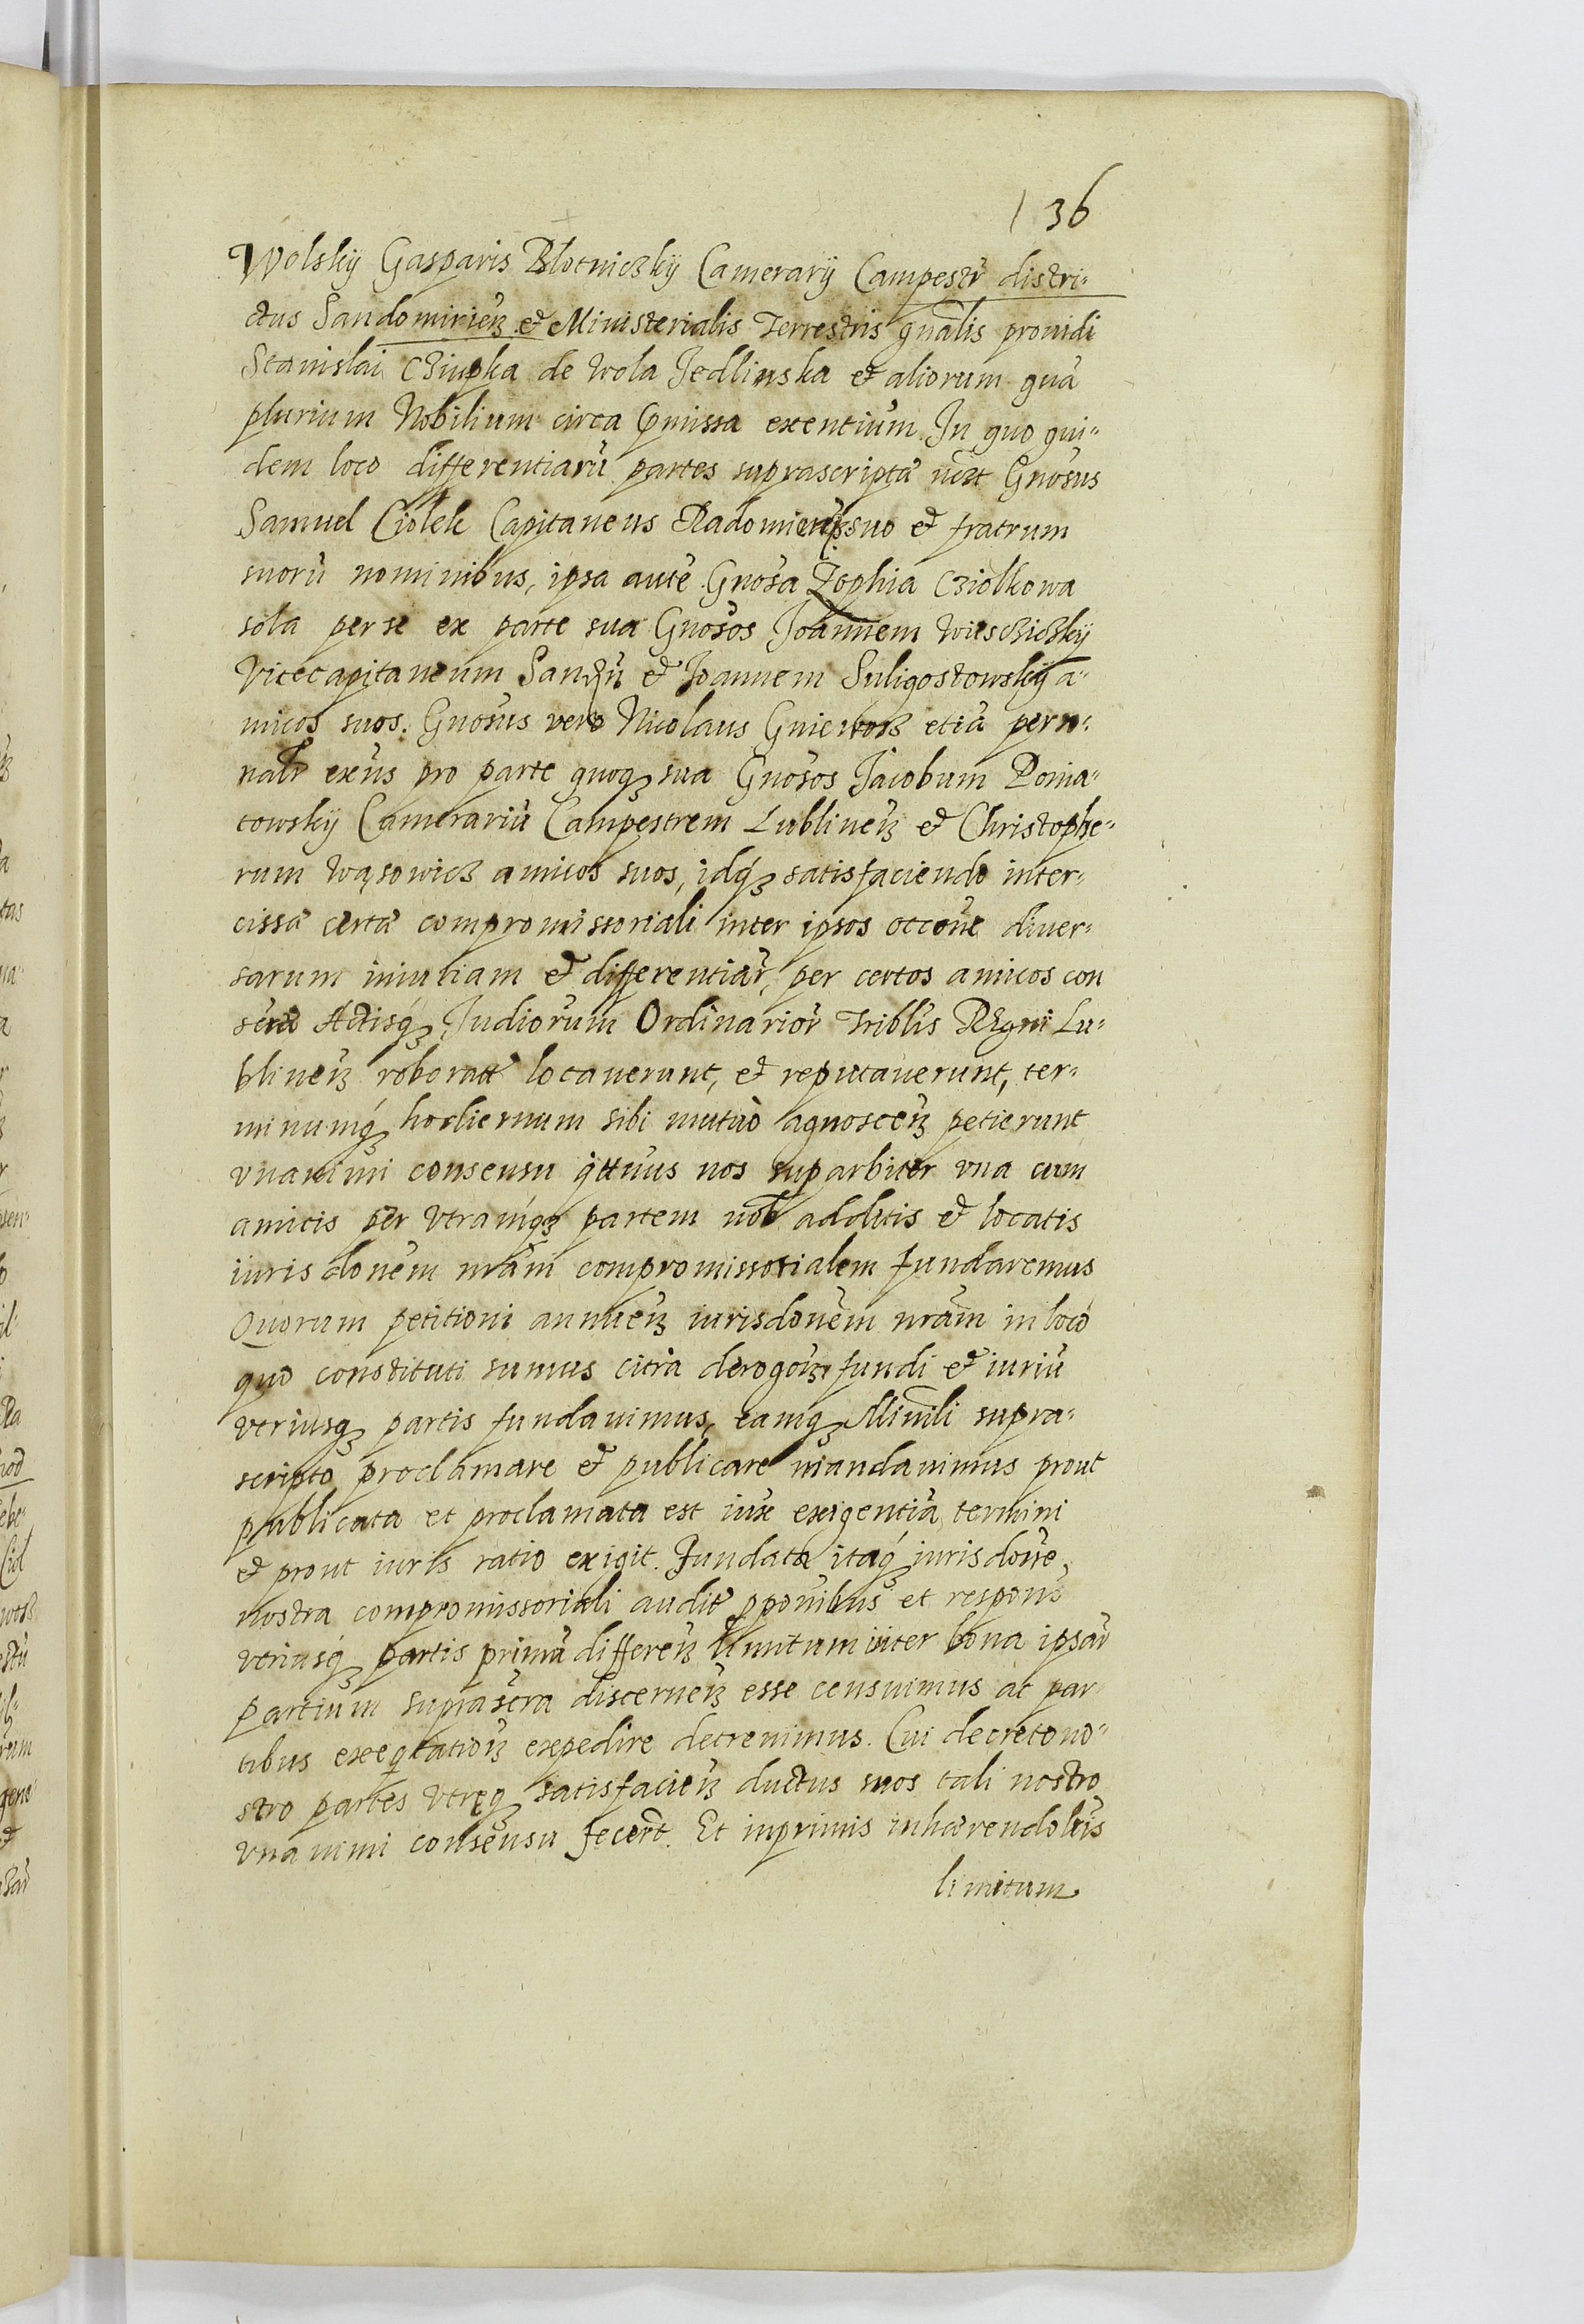 136
Wolskÿ Gasparis Blotniczkÿ Camerarÿ Campestr̄ distri-
ctus Sandomirien̄ et Ministerialis Terrestris gnãlis prouidi
Stanislai Cziupka de Wola Jedlinska et aliorum quã
plurium Nobilium circa p̱missa exentium. In quo qui-
dem loco differentiarũ partes suprascriptã uc̃zt Gnõsus
Samuel Ciolek Capitaneus Radomien̄ suo et fratrum
suorũ nominibus, ipsa autẽ Gnõsa Zophia Cziolkowa
sola per se ex parte sua Gnõsos Joannem Wieschiczkÿ
Vicecapitaneum Sand̃n̄ et Joannem Suligostowskÿ a-
micos suos. Gnõsus vero Nicolaus Gniewosz etiã perso-
nalr̄ exñs pro parte quoqꝫ sua Gnõsos Jacobum Ponia-
towskÿ Camerariũ Campestrem Lublinen̄ et Christophe-
rum Wąsowicz amicos suos, idqꝫ satisfaciendo inter-
cissã certã compromissoriali inter ipsos occõne diuer-
sarum iniuriam et differentiar̄, per certos amicos con
sẽrto Actisqꝫ Judiorum Ordinarior̄ Tribl̃is Regni Lu-
blinen̄ roboratt̄ locauerunt, et reputauerunt, ter-
minumqꝫ hodiernum sibi mutuò agnoscen̄ petierunt
vnanimi consensu q̃ttnus nos suparbiter vna cum
amicis per vtramqꝫ partem nob̃ additis et locatis
iurisdõnem nrãm compromissorialem fundaremus
Quorum petitioni annuen̄ iurisdõnem nrãm in loco
quo constituti sumus citra derogõn̄ fundi et iuriũ
vtriusqꝫ partis fundauimus, eamqꝫ Minl̃i supra-
scripto proclamare et publicare mandauimus prout
publicata et proclamata est iux̃ exigentiã termini
et prout iuris ratio exigit. Fundata itaqꝫ iurisdõne
nostra compromissoriali audit̃ p̱põnibus et respons̃
vtriusqꝫ partis primũ differen̄ limitum inter bona ipsar̄
partium suprascr̃a discernen̄ esse censuimus ac par
tibus exequtation̄ expedire decreuimus. Cui decreto no-
stro partes vtręqꝫ satisfacien̄ ductus suos tali nostro
vnanimi consensu fecer̃t. Et inprimis inhærendo lr̃is
limitum